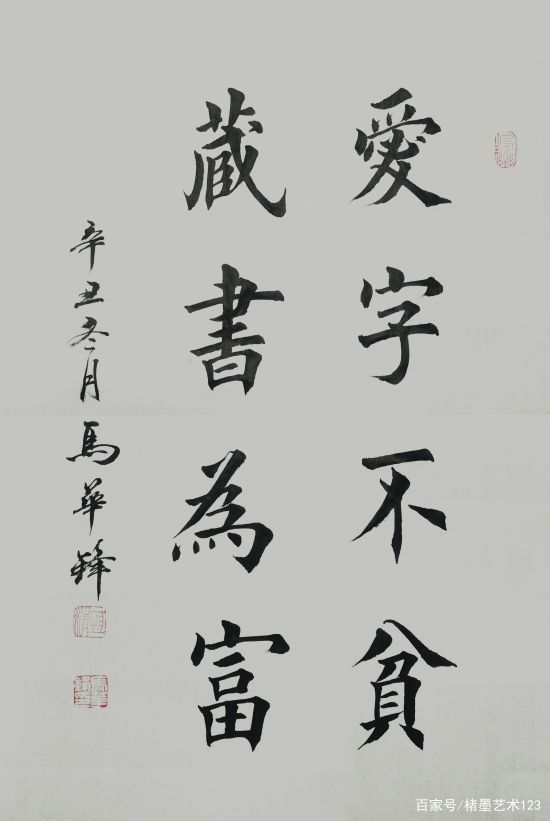 愛字不貧
藏書為富
辛丑冬月馬華鋒
百家号/楮墨艺术123